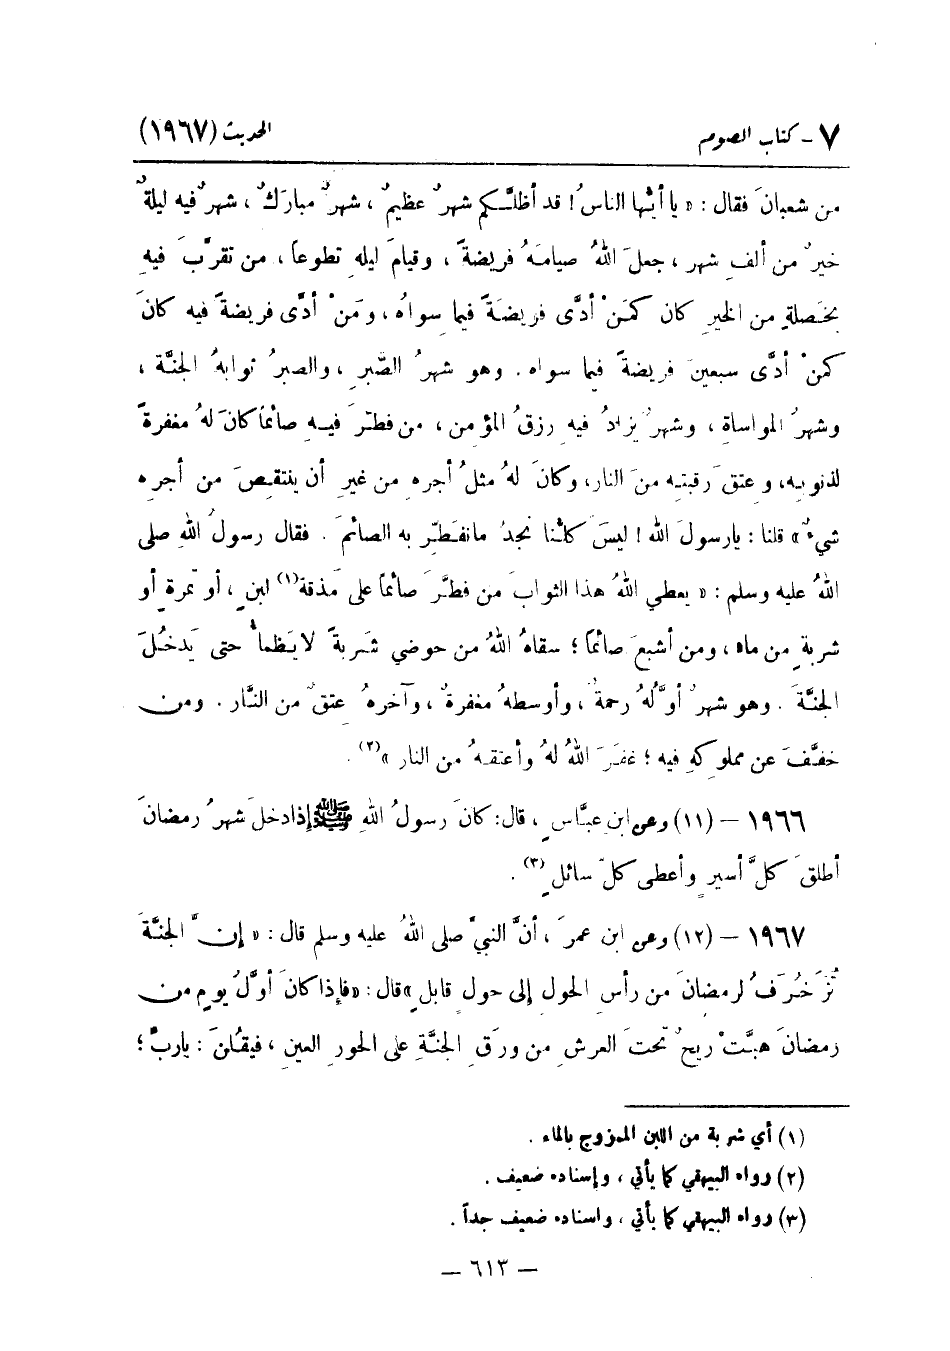 ٧ - كتاب الصوم
الحديث (١٩٦٧)
من شعبانَ فقال : « يا أيُّها الناسُ ! قد أظلَّكم شهرٌ عظيمٌ ، شهرٌ مباركٌ ، شهرٌ فيه ليلةٌ
خيرٌ من ألفِ شهر ، جعلَ اللهُ صيامَهُ فريضةً ، وقيامَ ليلهِ تطوعاً ، من تقرَّبَ فيهِ
بخَصلةٍ من الخيرِ كان كمَنْ أدَّى فريضَةً فيما سواهُ ، ومَنْ أدَّى فريضةً فيه كانَ
كمنْ أدَّى سبعينَ فريضةً فيما سواه . وهو شهرُ الصَّبرِ ، والصبرُ ثوابهُ الجنَّة ،
وشهرُ المواساةِ ، وشهرٌ يزادُ فيهِ رزقُ المؤمن ، من فطرَّ فيهِ صائماً كانَ لهُ مغفرةً
لذنوبِه، وعتقَ رقبتِه منَ النار، وكانَ لهُ مثلُ أجرهِ من غيرِ أن ينتقِصَ من أجرهِ
شيءٌ » قلنا : يارسولَ الله ! ليسَ كلُّنا نجدُ مانفَطِّر به الصائمَ . فقال رسولُ اللهِ صلى
اللهُ عليه وسلم : « يعطي اللهُ هذا الثوابَ من فطَّرَ صائماً على مَذقة(١) لبنٍ ، أو تمرةٍ أو
شربةٍ من ماء ، ومن أشبعَ صائماً ؛ سقاهُ اللهُ من حوضي شَربةً لا يَظمأُ حتى يَدخُلَ
الجنَّةَ . وهو شهرٌ أوَّلُهُ رحمةٌ ، وأوسطهُ مغفرةٌ ، وآخرهُ عتقٌ من النَّار . ومن
خفَّفَ عن مملوكهِ فيه ؛ غفَرَ اللهُ لهُ وأعتقهُ من النار »(٢) .
١٩٦٦ - (١١) وعن ابنِ عبَّاسٍ ، قال: كانَ رسولُ اللهِ ﷺ إذا دخلَ شهرُ رمضانَ
أطلقَ كلَّ أسيرٍ وأعطى كلّ سائلٍ(٣) .
١٩٦٧ - (١٢) وعن ابن عمرَ ، أنَّ النبيَّ صلى اللهُ عليه وسلم قال : « إنَّ الجنَّةَ
تُزَخرَفُ لرمضانَ من رأسِ الحولِ إلى حولٍ قابلٍ » قال : « فإذا كانَ أوَّلُ يومٍ من
رمضانَ هبَّتْ ريحٌ تحتَ العرشِ من ورَقِ الجنَّةِ على الحورِ العينِ ، فيقُلنَ : يارب ؛
(١) أي شربة من اللبن الممزوج بالماء .
(٢) رواه البيهقي كما يأتي ، وإسناده ضعيف .
(٣) رواه البيهقي كما يأتي ، واسناده ضعيف جداً .
— ٦١٣ —